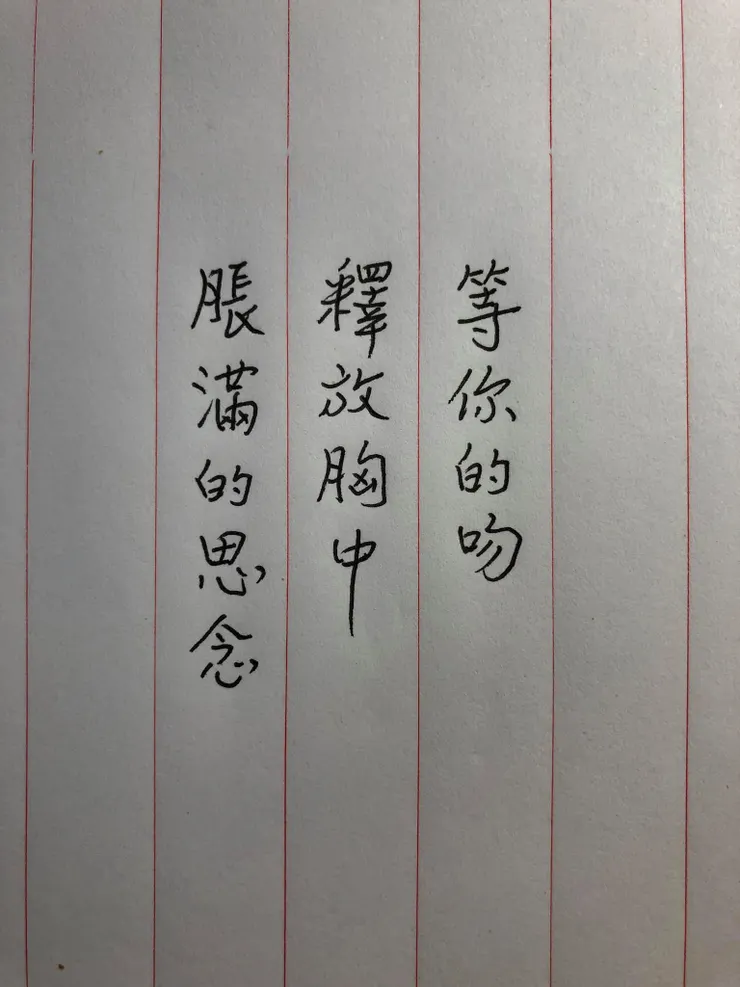 等你的吻
釋放胸中
脹滿的思念